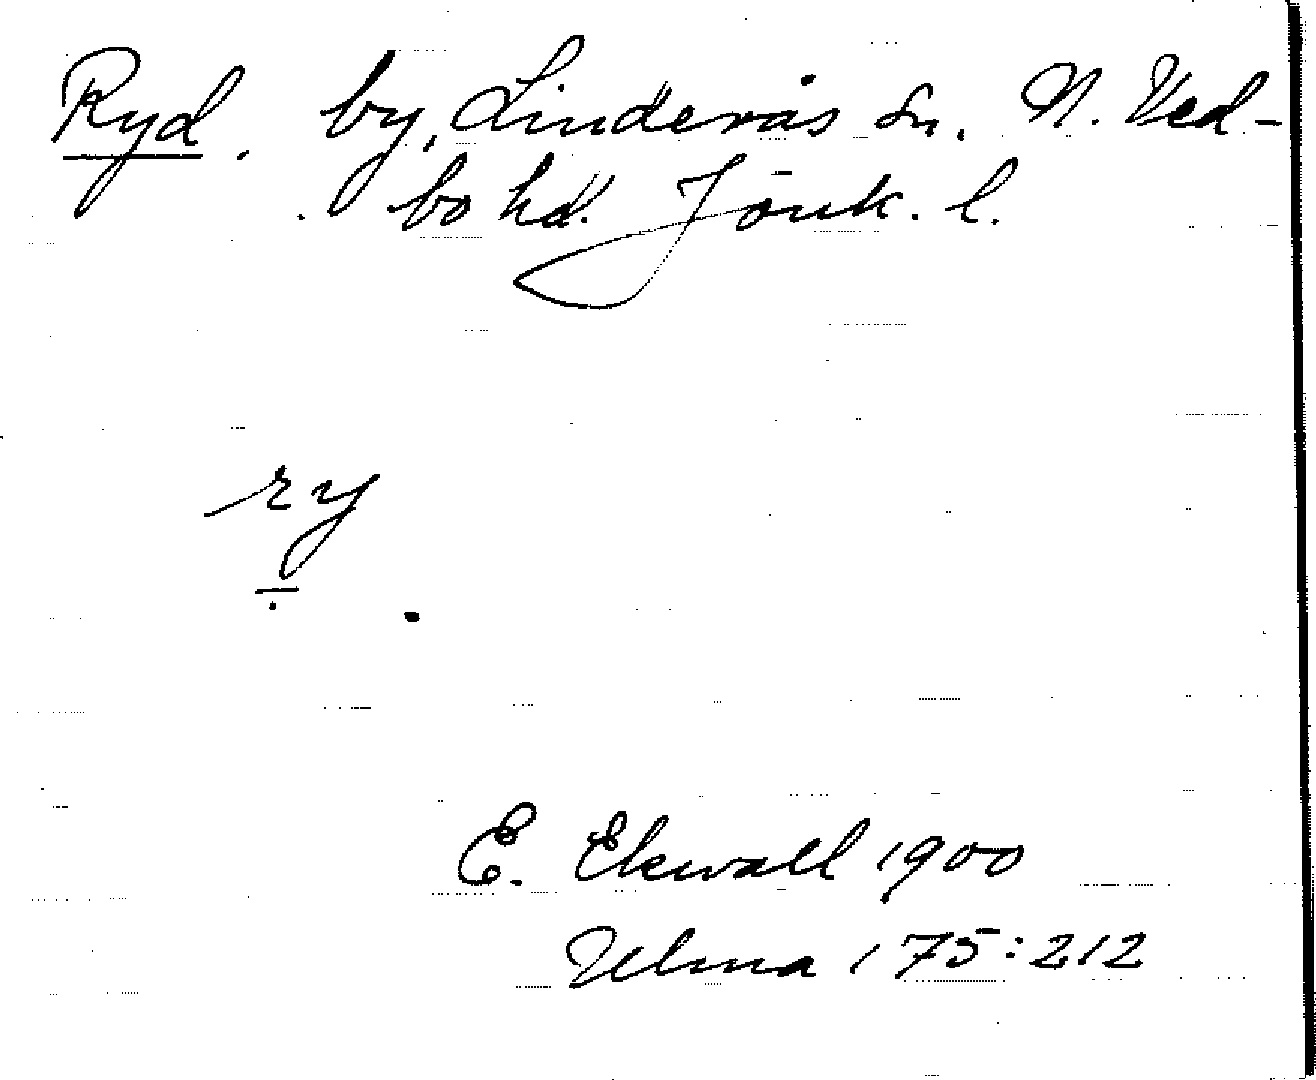 Ryd. by, Linderås sn. N. Ved-
bo hd. Jönk. l.
ry
E. Ekwall 1900
Ulma 175:212